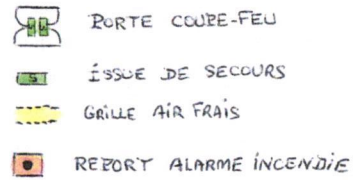 PORTE COUPE-FEU
S ISSUE DE SECOURS
GRILLE AIR FRAIS
REPORT ALARME INCENDIE